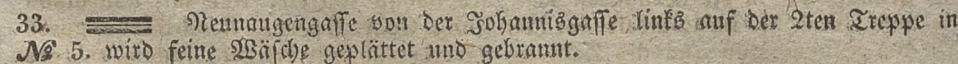 33. ═══ Neunaugengasse von der Johannisgasse links auf der 2ten Treppe in
№ 5. wird feine Wäsche geplättet und gebrannt.